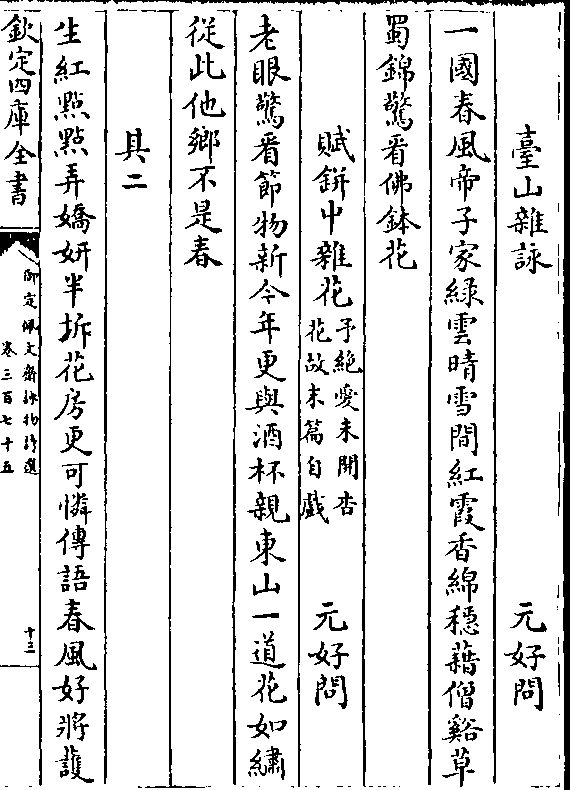 臺山雜詠　元好問
一國春風帝子家綠雲晴雪間紅霞香綿穩藉僧谿草
蜀錦驚看佛鉢花
賦缾中雜花予絕愛未開杏花故末篇自戲　元好問
老眼驚看節物新今年更與酒杯親東山一道花如繡
從此他鄉不是春
其二
生紅點點弄嬌妍半坼花房更可憐傳語春風好將護
欽定四庫全書
御定佩文齋詠物詩選
卷三百七十五
十三